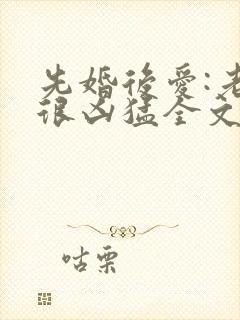 先婚後愛:老
很凶猛全文
咕栗